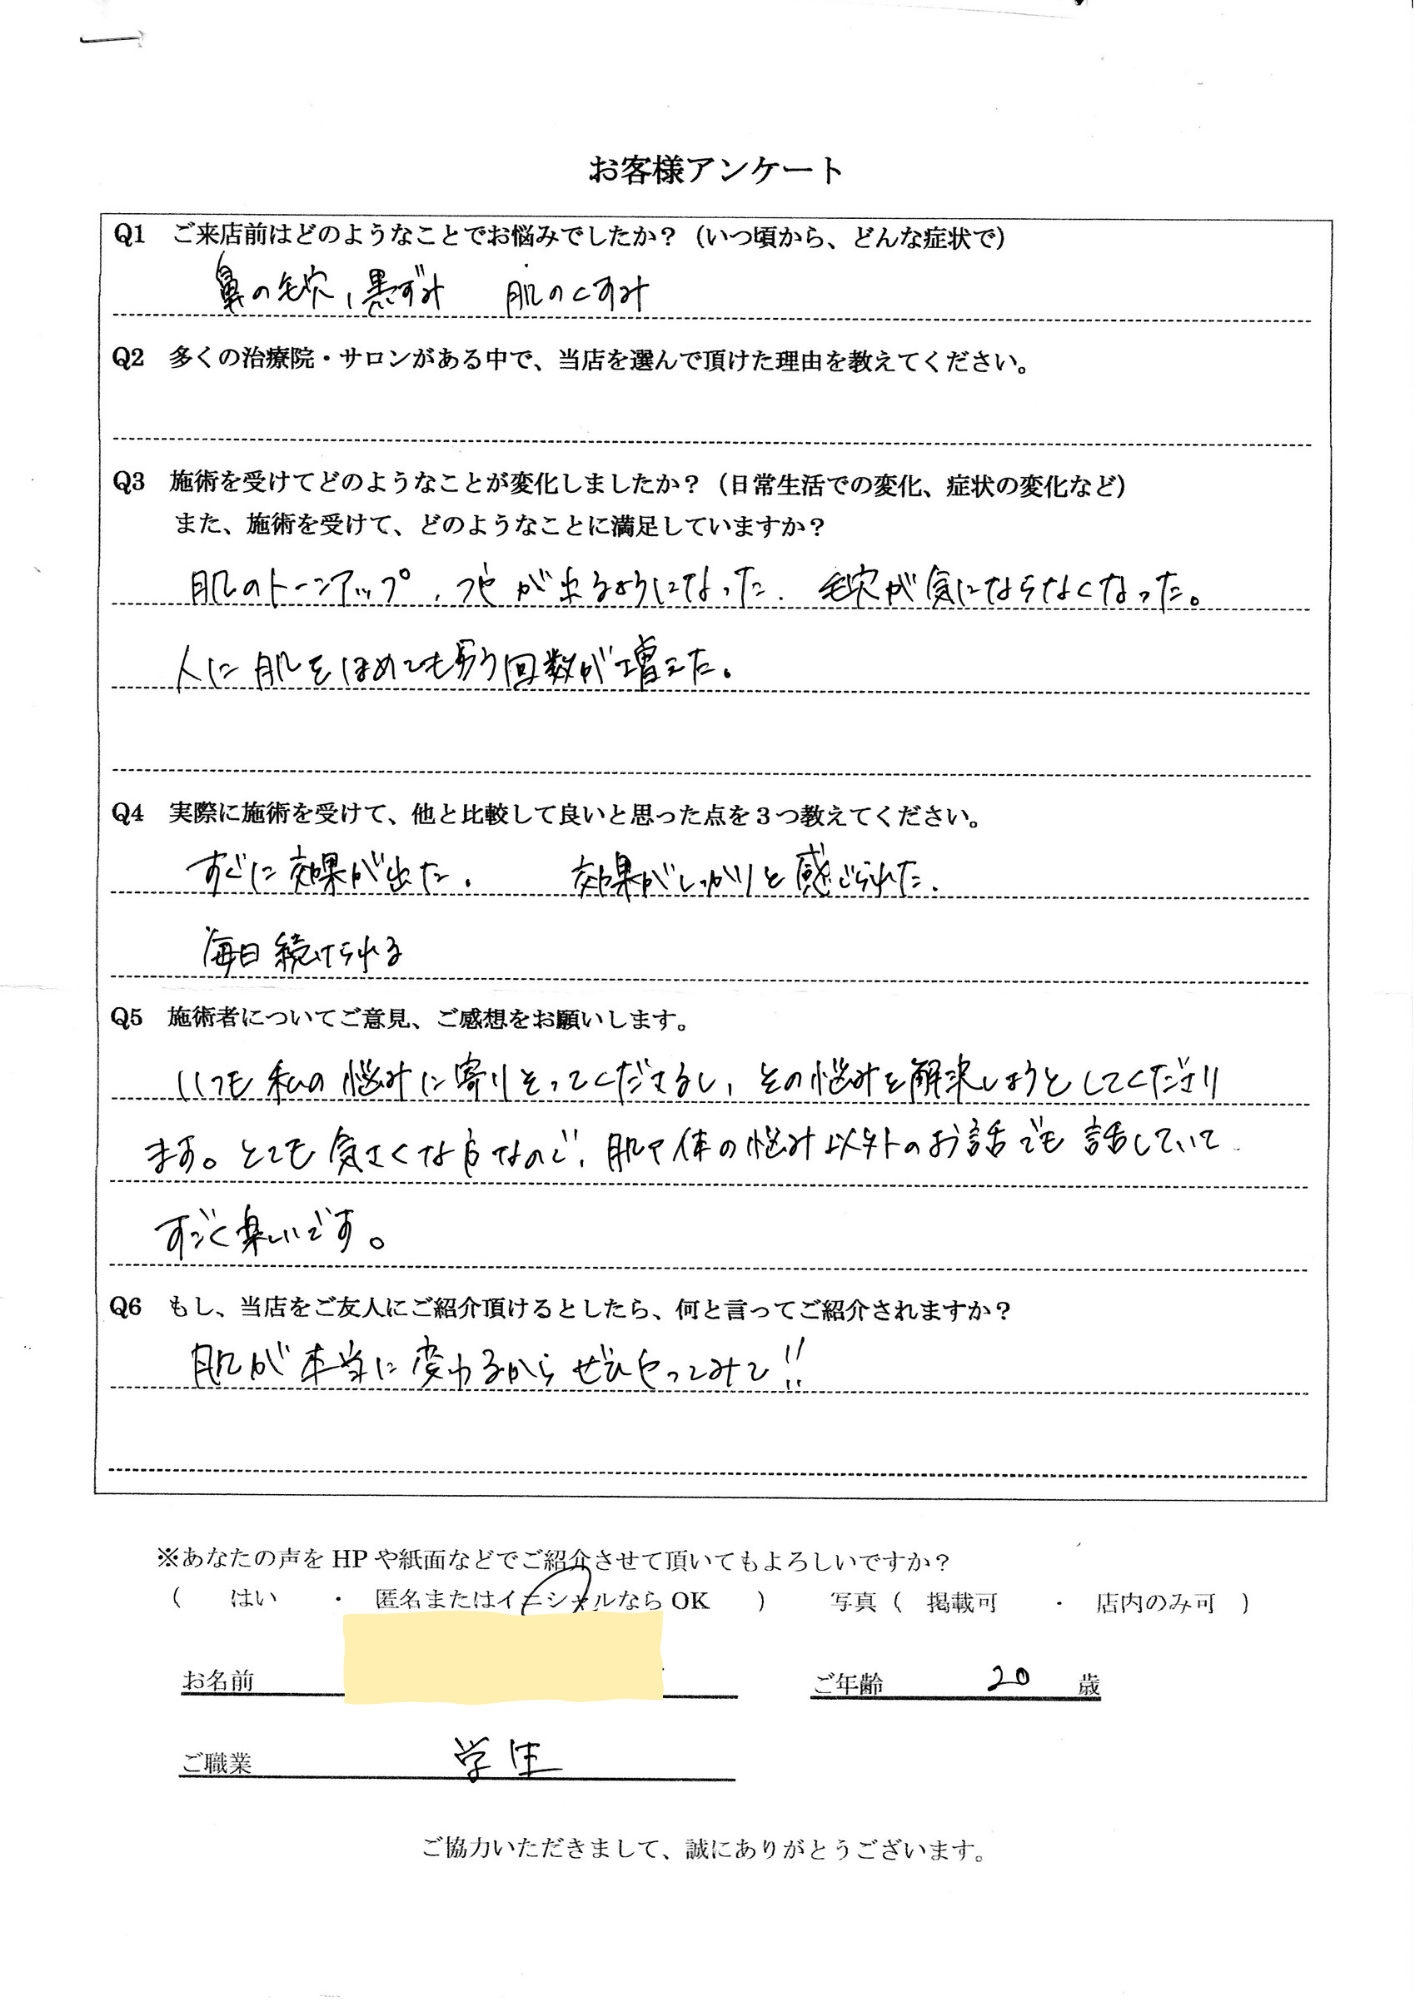 お客様アンケート
Q1 ご来店前はどのようなことでお悩みでしたか？（いつ頃から、どんな症状で）
鼻の毛穴、黒ずみ 肌のくすみ
Q2 多くの治療院・サロンがある中で、当店を選んで頂けた理由を教えてください。
Q3 施術を受けてどのようなことが変化しましたか？（日常生活での変化、症状の変化など）
また、施術を受けて、どのようなことに満足していますか？
肌のトーンアップ、ツヤが出るようになった。毛穴が気にならなくなった。
人に肌をほめても貰う回数が増えた。
Q4 実際に施術を受けて、他と比較して良いと思った点を３つ教えてください。
すぐに効果が出た。 効果がしっかりと感じられた。
毎日続けられる
Q5 施術者についてご意見、ご感想をお願いします。
いつも私の悩みに寄りそってくださるし、その悩みを解決しようとしてくださり
ます。とても気さくな方なので、肌や体の悩み以外のお話でも話していて
すごく楽しいです。
Q6 もし、当店をご友人にご紹介頂けるとしたら、何と言ってご紹介されますか？
肌が本当に変わるからぜひやってみて!!
※あなたの声を HP や紙面などでご紹介させて頂いてもよろしいですか？
（ はい ・ 匿名またはイニシャルなら OK ） 写真（ 掲載可 ・ 店内のみ可 ）
お名前 ご年齢 20 歳
ご職業 学生
ご協力いただきまして、誠にありがとうございます。